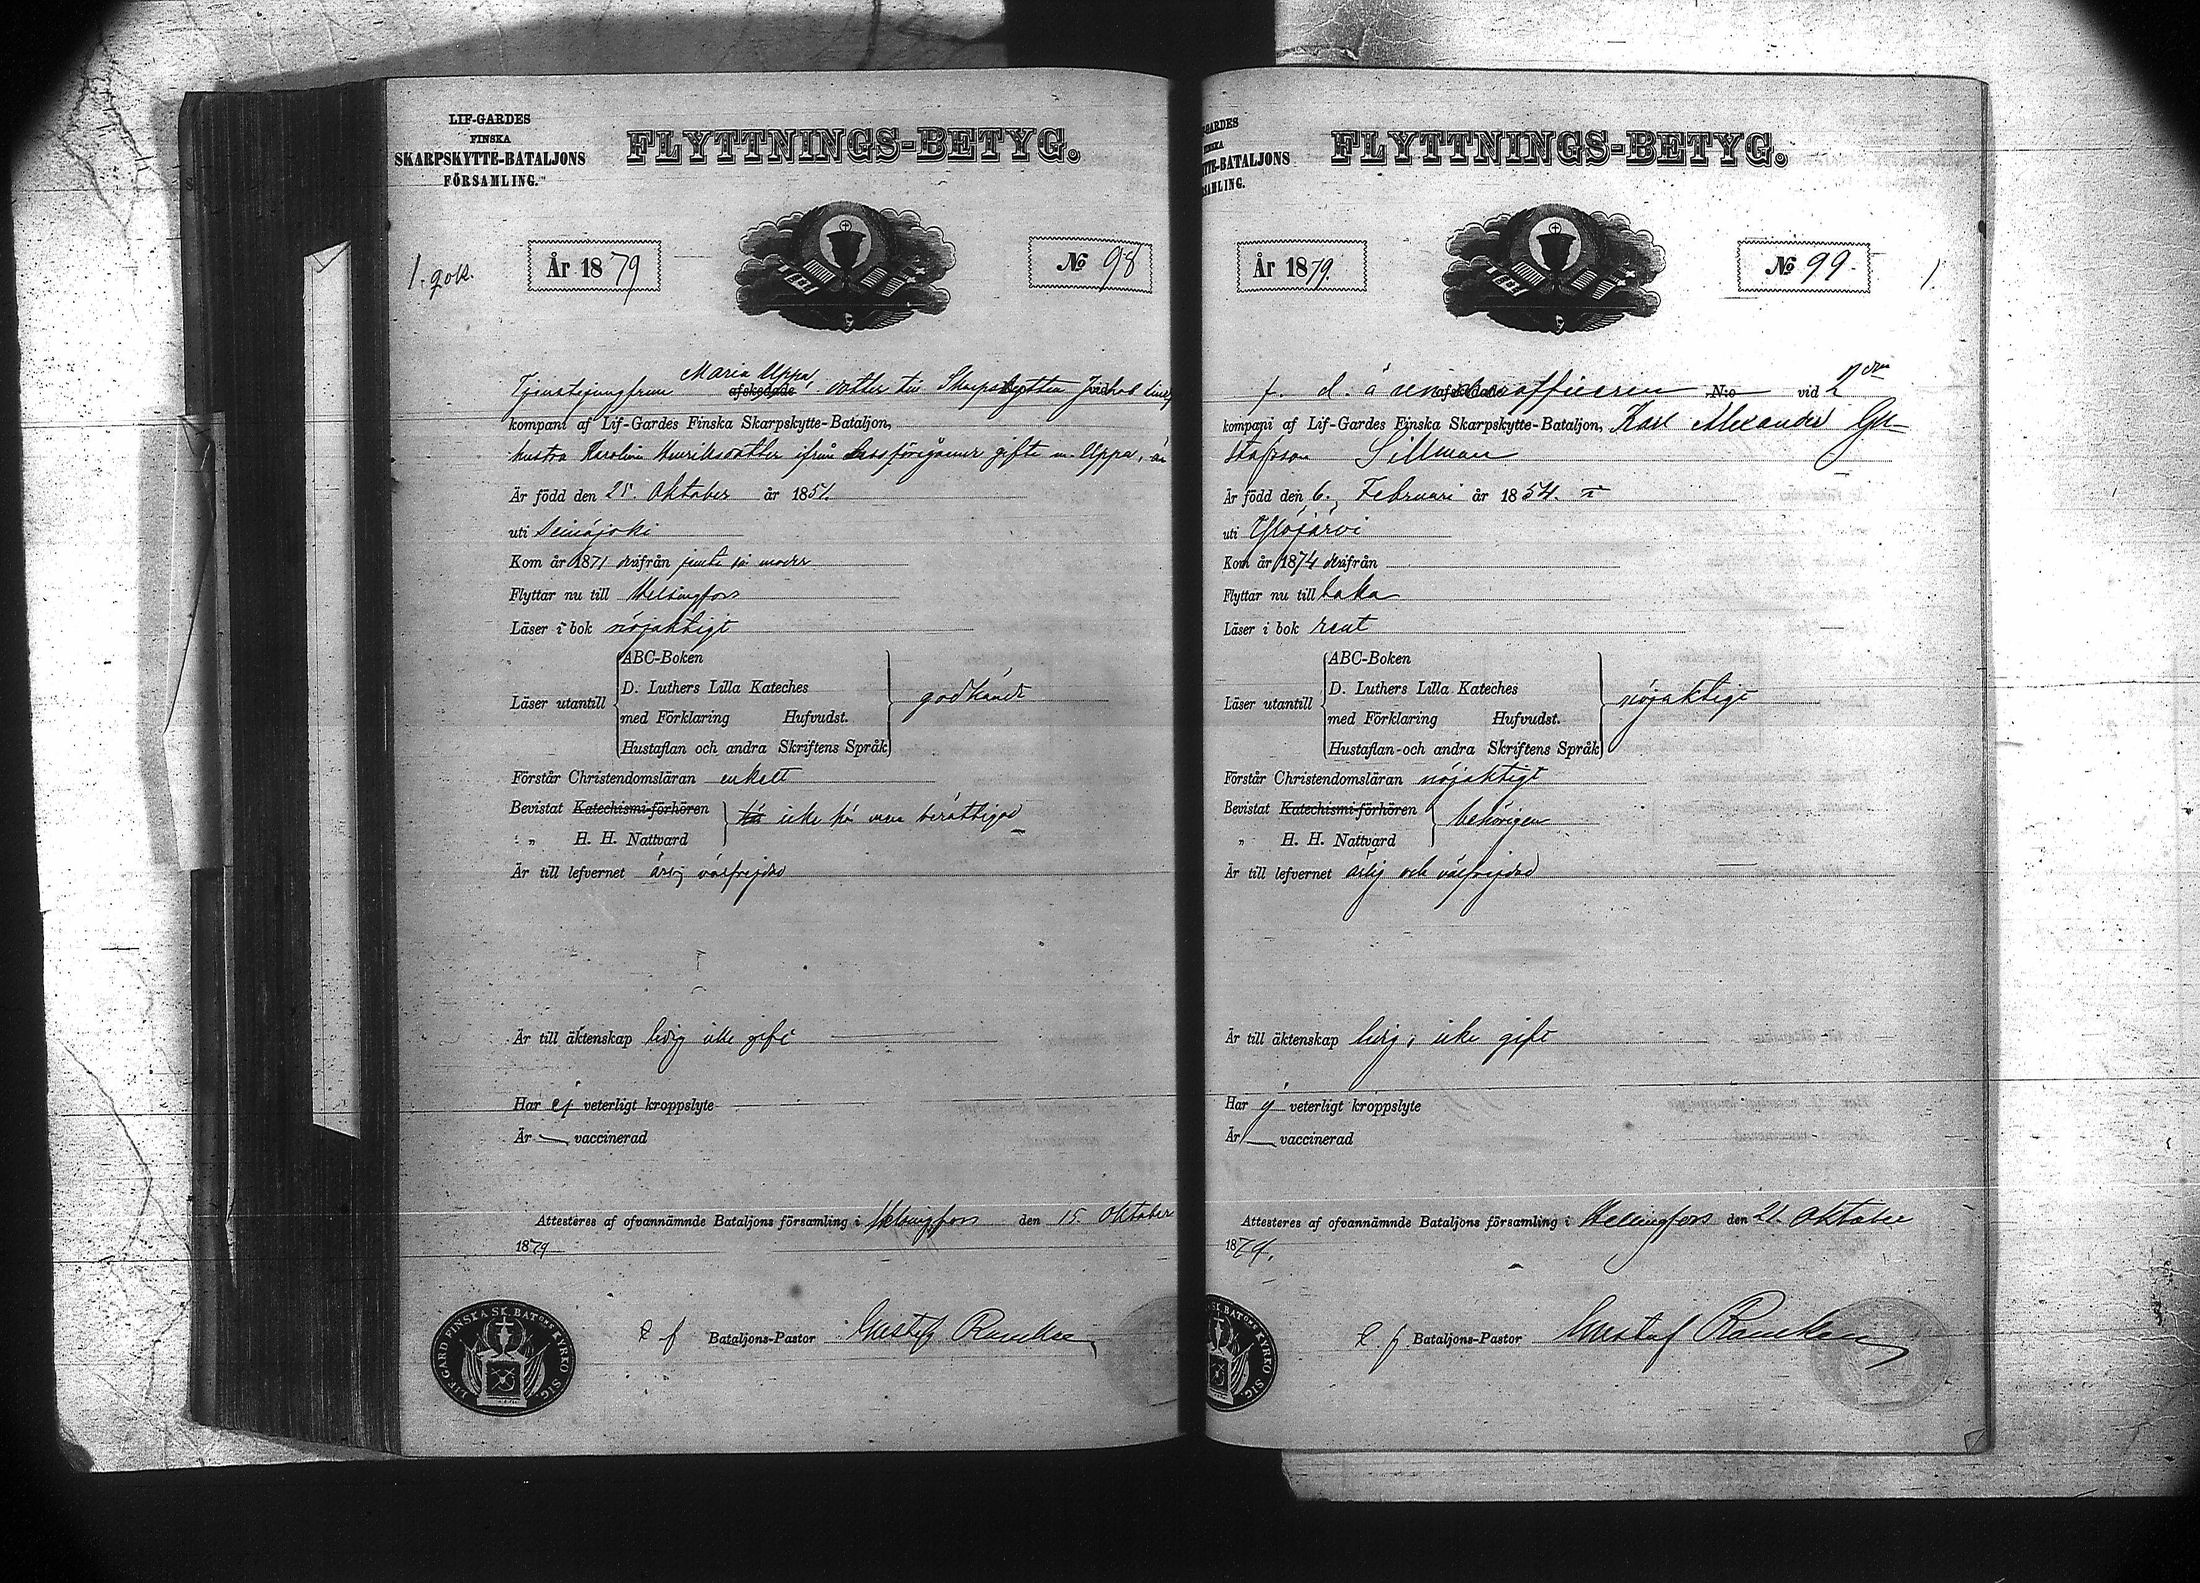 LIF-GARDES
FINSKA
SKARPSKYTTE-BATALJONS
FÖRSAMLING.
FLYTTNINGS-BETYG.
1.
År 1879
№ 98
Tjenstejungfrun Maria Uppa afskedade dotter till Skarpskytten Jakob
kompani af Lif-Gardes Finska Skarpskytte-Bataljon,
hustru Karolina Henriksdotter ifrån dess föregående gifte m. Uppa, är
Är född den 25. Oktober år 1851.
uti Seinäjoki
Kom år 1871 derifrån jemte sin moder
Flyttar nu till Helsingfors
Läser i bok nöjaktigt
Läser utantill
ABC-Boken
D. Luthers Lilla Kateches
med Förklaring Hufvudst.
Hustaflan och andra Skriftens Språk
godkändt
Förstår Christendomsläran enkelt
Bevistat Katechismi-förhören
„ H. H. Nattvard
icke här men berättigad
Är till lefvernet välfrejdad
Är till äktenskap ledig icke gift
Har ej veterligt kroppslyte
Är — vaccinerad
Attesteras af ofvannämnde Bataljons församling i Helsingfors den 15. Oktober
1879
LIF GARD FINSKA SK. BAT:ONS KYRKO SIG.
e f Bataljons-Pastor Gustaf Ramken
GARDES
TTE-BATALJONS
SAMLING.
FLYTTNINGS-BETYG.
År 1879.
№ 99.
1.
f. d. underofficeren N:o vid 2dra
kompani af Lif-Gardes Finska Skarpskytte-Bataljon, Karl Alexander Gu-
stafsson Sillman
Är född den 6. Februari år 1854. i
uti Ylöjärvi
Kom år 1874 derifrån
Flyttar nu till
Läser i bok rent
Läser utantill
ABC-Boken
D. Luthers Lilla Kateches
med Förklaring Hufvudst.
Hustaflan och andra Skriftens Språk
nöjaktigt
Förstår Christendomsläran nöjaktigt
Bevistat Katechismi-förhören
„ H. H. Nattvard
behörigen
Är till lefvernet ärlig och välfrejdad
Är till äktenskap ledig, icke gift
Har ej veterligt kroppslyte
Är — vaccinerad
Attesteras af ofvannämnde Bataljons församling i Helsingfors den 21. Oktober
1879.
SK. BAT:ONS KYRKO SIG.
e f Bataljons-Pastor Gustaf Ramken